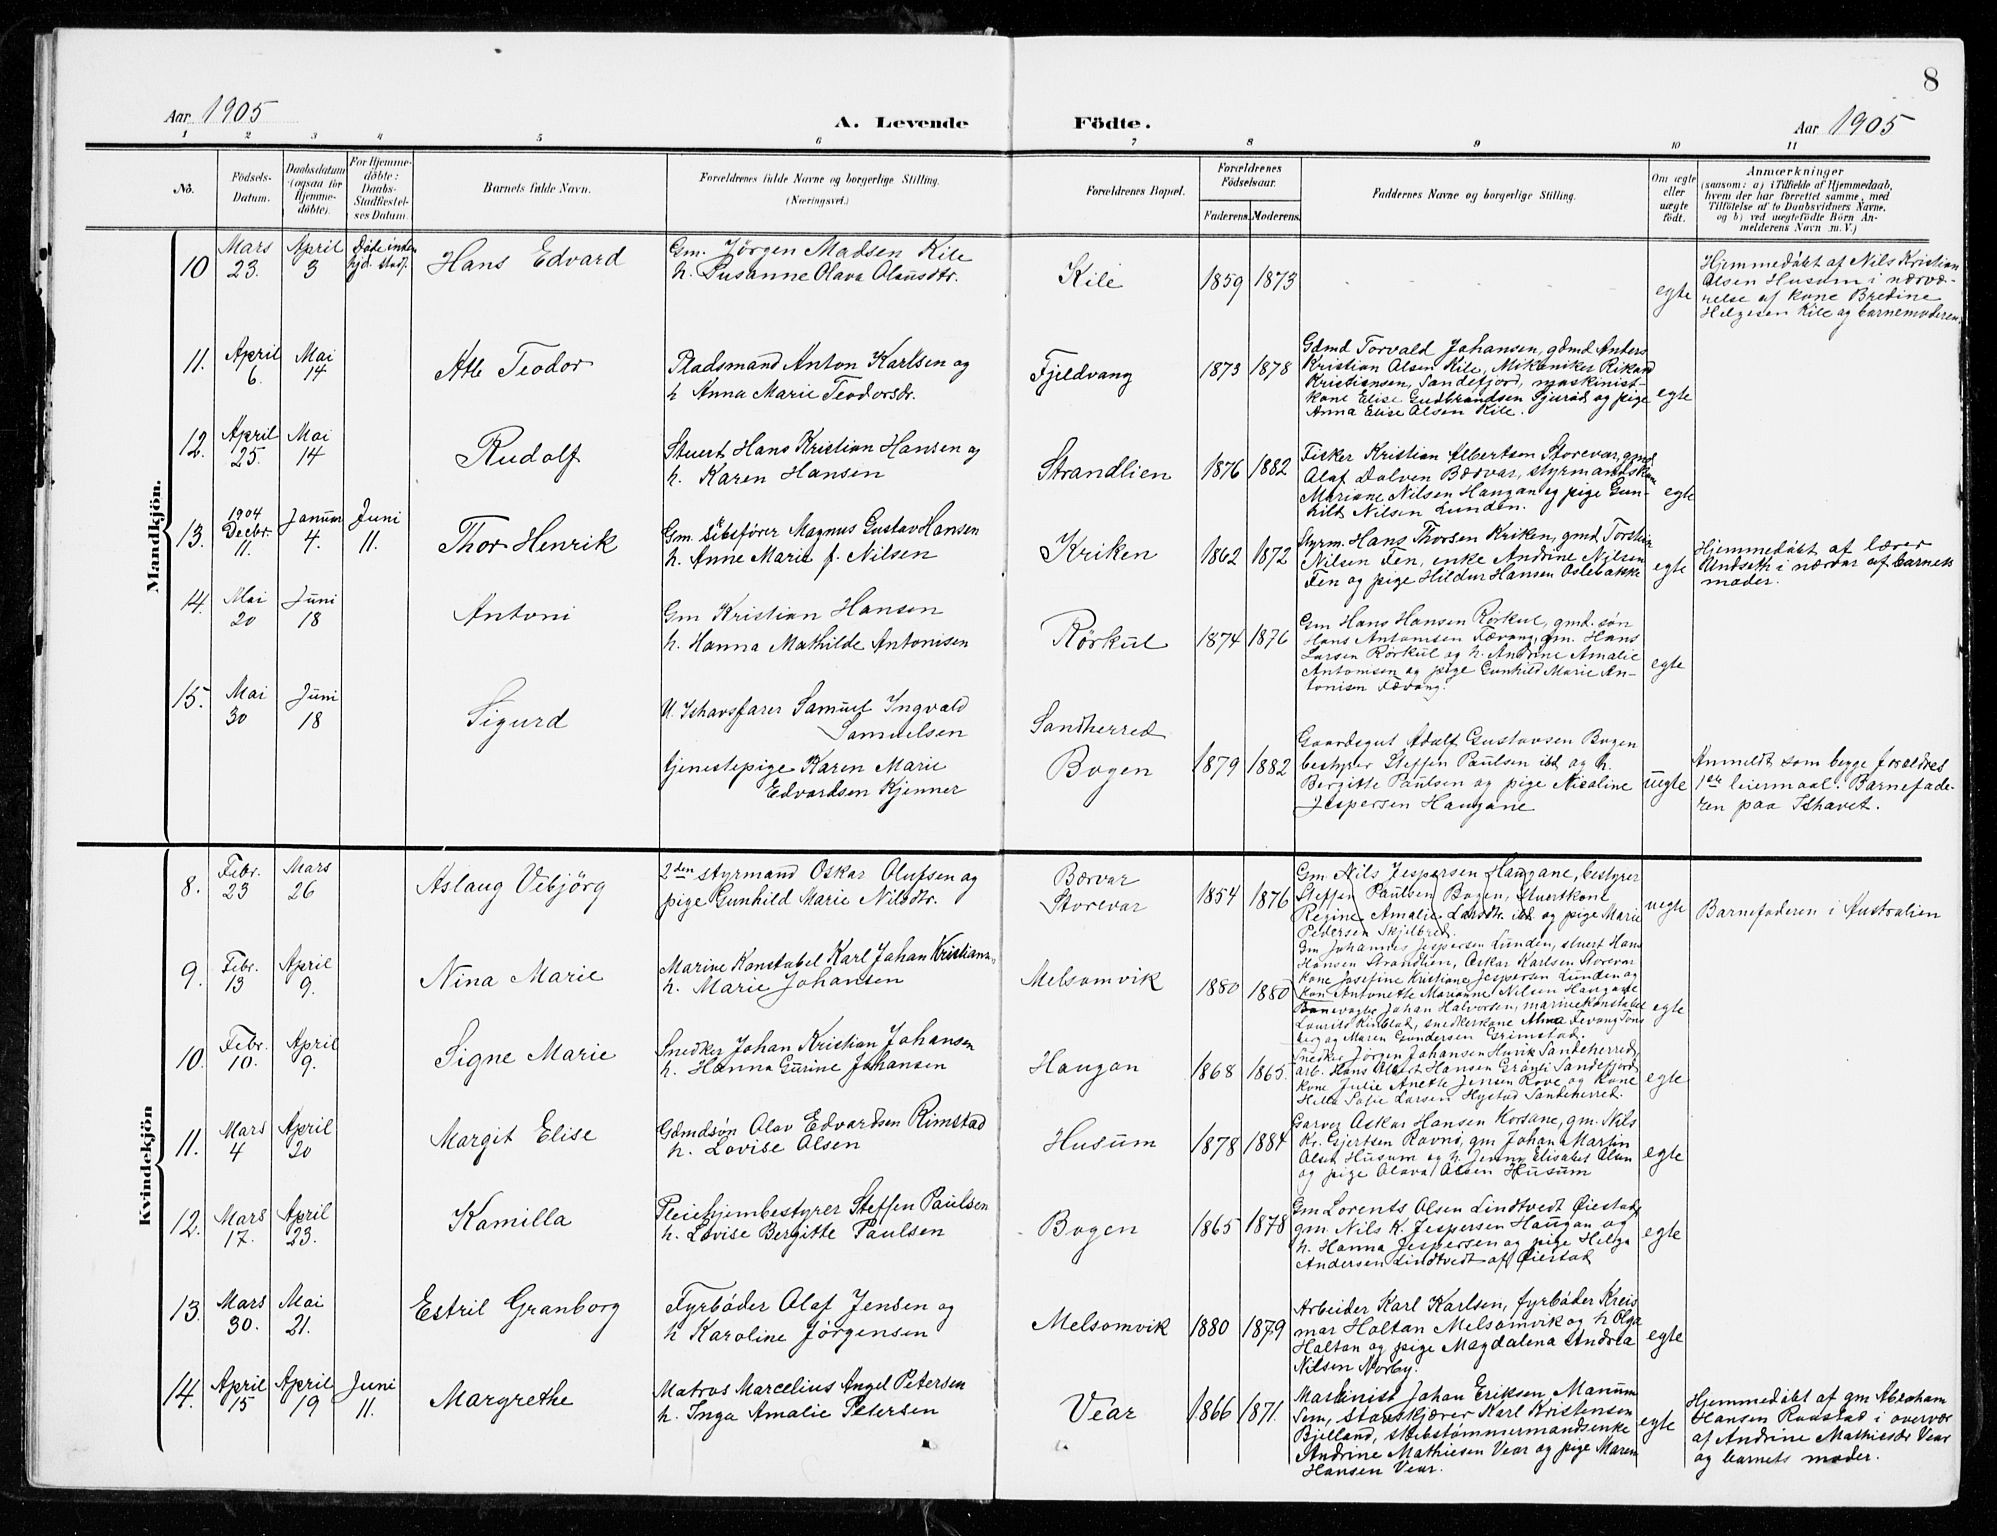 8
Aar 1905
A. Levende Födte.
Aar 1905
1 2 3 4 5 6 7 8 9 10 11
No.
Födsels-
Datum.
Daabsdatum
(ogsaa for
Hjemme-
döbte).
For Hjemme-
döbte:
Daabs-
Stadfæstel-
ses Datum.
Barnets fulde Navn.
Forældrenes fulde Navne og borgerlige Stilling.
(Næringsvei.)
Forældrenes Bopæl.
Forældrenes
Födselsaar.
Faderens. Moderens.
Faddernes Navne og borgerlige Stilling.
Om ægte
eller
uægte
födt.
Anmærkninger
(saasom: a) i Tilfælde af Hjemmedaab,
hvem der har forrettet samme, med
Tilföielse af to Daabsvidners Navne,
og b) ved uægtefödte Börn An-
melderens Navn m. V.)
Mandkjön.
10
Mars
23.
April
3
Døde inden
hjd. stadf.
Hans Edvard
Gm. Jørgen Madsen Kile
h. Susanne Olava Olausdtr.
Kile
1859 1873
egte
Hjemmedøbt af Nils Kristian
Olsen Husum i nærvæ-
relse af kone Bredine
Helgesen Kile og barnemoderen.
11.
April
6.
Mai
14
Atle Teodor
Pladsmand Anton Karlsen og
h Anna Marie Teodorsdr.
Fjeldvang
1873 1878
Gdmd Torvald Johansen, gdmd Anters
Kristian Olsen Kile, Mikaniker Rikard
Kristiansen, Sandefjord, maskinist-
kone Elise Gudbrandsen Sjurød og pige
Anna Elise Olsen Kile.
egte
12.
April
25.
Mai
14
Rudolf
Stuert Hans Kristian Hansen og
h. Karen Hansen
Strandlien
1876 1882
Fisker Kristian Albertsen Storevar, gmd.
Olaf Dalven Bærvar, styrmandskone
Mariane Nilsen Haugan og pige Gun-
hild Nilsen Lunden.
egte
13.
1904
Decbr.
11.
Januar
4.
Juni
11.
Thor Henrik
Gm. skibsfører Magnus Gustav Hansen
h. Anne Marie f. Nilsen
Kriken
1862 1872
Styrm. Hans Thorsen Kriken, gmd. Torstein
Nilsen Fen, enke Andrine Nilsen
Fen og pige Hilder Hansen Oslebakke
egte
Hjemmedøbt af lærer
Undseth i nærvær af barnets
moder.
14.
Mai
20
Juni
18
Antoni
Gm Kristian Hansen
h. Hanna Mathilde Antonisen
Rørkul
1874 1876
Gm Hans Hansen Rørkul, gmd. søn
Hans Antonisen Fævang, gm. Hans
Larsen Rørkul og h. Andrine Amalie
Antonisen og pige Gunhild Marie An-
tonisen Fævang.
egte
15.
Mai
30
Juni
18
Sigurd
U. Ishavsfarer Samuel Ingvald
Samuelsen
tjenestepige Karen Marie
Edvardsen Kjenner
Sandherred
Bogen
1879 1882
Gaardsgut Adolf Gustavsen Bogen
bestyrer Steffen Paulsen ibd og h.
Bergitte Paulsen og pige Nicoline
Jespersen Haugane
uegte
Anmeldt som begge forældres
1er leiermaal. Barnefade-
ren paa Ishavet.
Kvindekjön
8.
Febr.
23
Mars
26
Aslaug Vebjörg
2den styrmand Oskar Olufsen og
pige Gunhild Marie Nilsdtr.
Bærvar
Storevar
1854 1876
Gm Nils Jespersen Haugane, bestyrer
Steffen Paulsen Bogen, Stuertkone
Regine Amalie Larsdtr. ibd og pige Marie
Pedersen Skjelbred.
uegte
Barnefaderen i Australien
9.
Febr.
13
April
9.
Nina Marie
Marine Konstabel Karl Johan Kristians.
h. Marie Johansen
Melsomvik
1880 1880
Gm Johannes Jespersen Lunden, stuert Hans
Hansen Strandlien, Oskar Karlsen Storevar
kone Josefine Kristiane Jespersen Lunden og
kon Antonette Marianne Nilsen Haugane
egte
10
Febr.
10.
April
9.
Signe Marie
Snedker Johan Kristian Johansen
h. Hanna Gurine Johansen
Haugan
1868 1865.
Banevogter Johan Halvorsen, marinekonstabel
Laurits snedkerkone Alma Fevang Tøns
berg og Maren Gundersen Grimstad.
Snedker Jörgen Johansen Huvik Sandeherred,
arb. Hans Albert Hansen Granli Sandefjord,
kone Julie Anette Jensen Rove og kone
Hilla Sofie Larsen Hystad Sandeherred.
egte
11.
Mars
4
April
20
Margit Elise
Gdmdsøn Olav Edvardsen Rimstad
h. Lovise Olsen
Husum
1878 1884
Garver Oskar Hansen Korsane, gm. Nils
Kr. Gjertsen Ravnø, gm Johan Martin
Olsen Husum og h. Jenny Elisabet Olsen
og pige Olava Olsen Husum
egte
12.
Mars
17.
April
23.
Kamilla
Pleiehjembestyrer Steffen Paulsen
h. Lovise Bergitte Paulsen
Bogen
1865 1878
Gm Lorents Olsen Lindtvedt Øiestad,
gm. Nils K. Jespersen Haugan og
h. Hanna Jespersen og pige Helga
Andersen Lindtvedt af Øiestad
egte
13.
Mars
30.
Mai
21.
Estril Granborg
Fyrbøder Olaf Jensen og
h Karoline Jørgensen
Melsomvik
1880 1879
Arbeider Karl Karlsen, fyrbøder Kreis
mar Holtan Melsomvik og h Olga
Holtan og pige Magdalena Andrea
Nilsen Norby.
egte
14.
April
15
April
19
Juni
11.
Margrethe
Matros Marcelius Angel Petersen
h. Inga Amalie Petersen
Vear
1866 1871.
Maskinist Johan Eriksen Manum
Sem, Storskjærer Karl Kristensen
Bjelland, skibstømmermandsenke
Andrine Mathiesen Vear og pige Maren
Hansen Vear.
egte
Hjemmedøbt af gm Abraham
Hansen Raastad i overvær
af Andrine Mathiesdr Vear
og barnets moder.